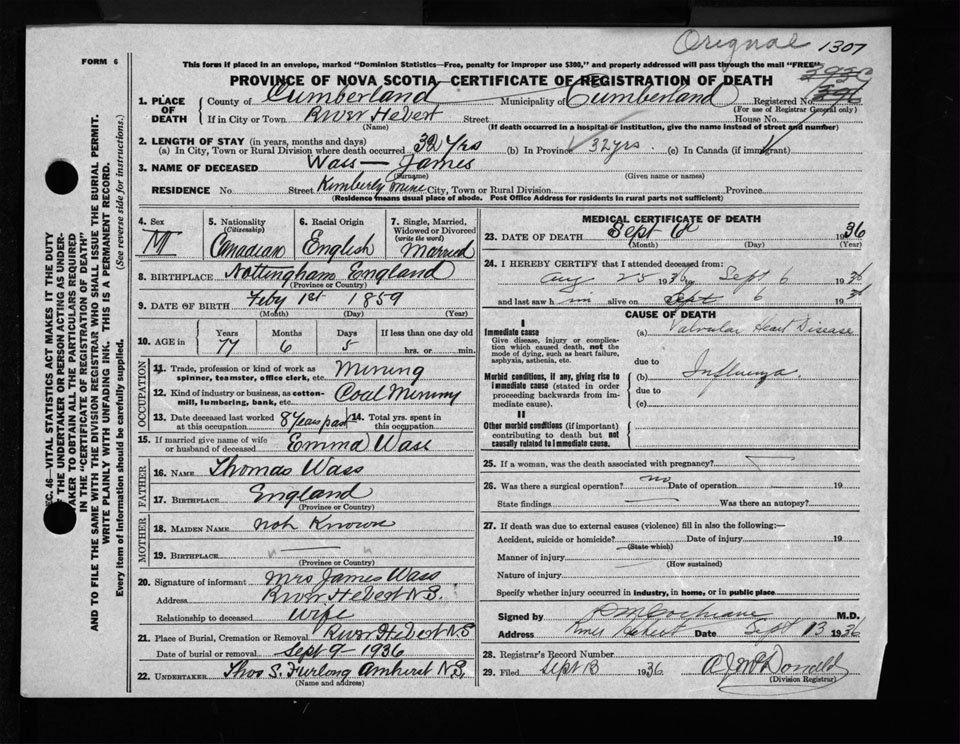 Orignal 1307
FORM 6
This form if placed in an envelope, marked "Dominion Statistics—Free, penalty for improper use $300," and properly addressed will pass through the mail "FREE"
PROVINCE OF NOVA SCOTIA—CERTIFICATE OF REGISTRATION OF DEATH
1. PLACE OF DEATH County of Cumberland Municipality of Cumberland Registered No.
(For use of Registrar General only)
If in City or Town River Hebert Street House No.
(Name) (If death occurred in a hospital or institution, give the name instead of street and number)
2. LENGTH OF STAY (in years, months and days)
(a) In City, Town or Rural Division where death occurred 32 Yrs (b) In Province 32 yrs. (c) In Canada (if immigrant)
3. NAME OF DECEASED Wass — James
(Surname) (Given name or names)
RESIDENCE No. Street Kimberly Mine City, Town or Rural Division Province
(Residence means usual place of abode. Post Office Address for residents in rural parts not sufficient)
SEC. 46—VITAL STATISTICS ACT MAKES IT THE DUTY
OF THE UNDERTAKER OR PERSON ACTING AS UNDER-
TAKER TO OBTAIN ALL THE PARTICULARS REQUIRED
IN THE "CERTIFICATE OF REGISTRATION OF DEATH"
AND TO FILE THE SAME WITH THE DIVISION REGISTRAR WHO SHALL ISSUE THE BURIAL PERMIT.
WRITE PLAINLY WITH UNFADING INK. THIS IS A PERMANENT RECORD.
Every item of Information should be carefully supplied. (See reverse side for instructions.)
4. Sex M
5. Nationality (Citizenship) Canadian
6. Racial Origin English
7. Single, Married, Widowed or Divorced (write the word) Married
8. BIRTHPLACE Nottingham England
(Province or Country)
9. DATE OF BIRTH Feby 1st 1859
(Month) (Day) (Year)
10. AGE in Years 77 Months 6 Days 5 If less than one day old hrs. or min.
OCCUPATION
11. Trade, profession or kind of work as spinner, teamster, office clerk, etc. Mining
12. Kind of industry or business, as cotton-mill, lumbering, bank, etc. Coal Mining
13. Date deceased last worked at this occupation 8 years past 14. Total yrs. spent in this occupation
15. If married give name of wife or husband of deceased Emma Wass
FATHER
16. NAME Thomas Wass
17. BIRTHPLACE England
(Province or Country)
MOTHER
18. MAIDEN NAME not Known
19. BIRTHPLACE " — "
(Province or Country)
20. Signature of informant Mrs James Wass
Address River Hebert N.S.
Relationship to deceased Wife
21. Place of Burial, Cremation or Removal River Hebert N.S
Date of burial or removal Sept 9 - 1936
22. UNDERTAKER Thos S. Furlong Amherst N.S.
(Name and address)
MEDICAL CERTIFICATE OF DEATH
23. DATE OF DEATH Sept 6 1936
(Month) (Day) (Year)
24. I HEREBY CERTIFY that I attended deceased from:
Aug 25 1936 Sept 6 1936
and last saw h im alive on Sept 6 1936
CAUSE OF DEATH
I
Immediate cause
Give disease, injury or complication which caused death, not the mode of dying, such as heart failure, asphyxia, asthenia, etc.
(a) Valvular Heart Disease
due to
Morbid conditions, if any, giving rise to immediate cause (stated in order proceeding backwards from immediate cause).
(b) Influenza.
due to
(c)
II
Other morbid conditions (if important) contributing to death but not causally related to immediate cause.
25. If a woman, was the death associated with pregnancy? —
26. Was there a surgical operation? no Date of operation 19
State findings — Was there an autopsy?
27. If death was due to external causes (violence) fill in also the following:—
Accident, suicide or homicide? Date of injury 19
(State which)
Manner of injury
(How sustained)
Nature of injury
Specify whether injury occurred in industry, in home, or in public place
Signed by Cochrane M.D.
Address River Hebert Date Sept 13 1936
28. Registrar's Record Number
29. Filed Sept 13 1936 McDonald
(Division Registrar)